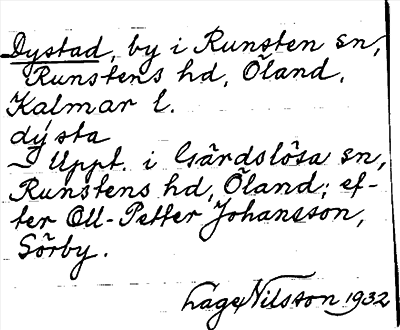 Dystad, by i Runsten sn,
Runstens hd, Öland,
Kalmar l.
dýsta
— Uppt. i Gärdslösa sn,
Runstens hd, Öland; ef-
ter Oll-Petter Johansson,
Sörby.
Lage Nilsson 1932